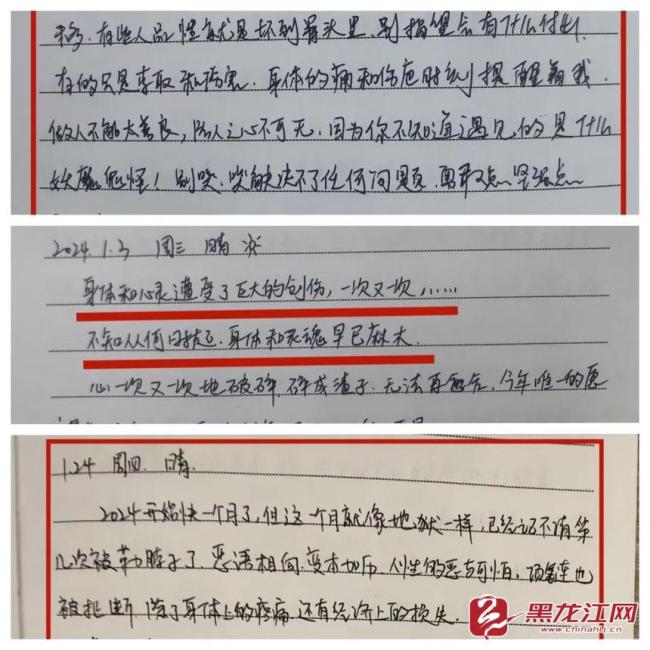 移.有些人品性就是坏到骨头里,别指望会有什么付出.
有的只是索取和伤害.身体的痛和伤应时刻提醒着我.
做人不能太善良,防人之心不可无.因为你不知道遇见的是什么
妖魔鬼怪!别哭,哭解决不了任何问题,勇敢点 坚强点
2024.1.3 周三 晴
身体和心灵遭受了巨大的创伤,一次又一次......
不知从何时起,身体和灵魂早已麻木.
心一次又一次地破碎,碎成渣子.无法再愈合.今年唯一的愿
1.24 周四. 晴.
2024开始快一个月了,但这一个月就像地狱一样,已经记不清第
几次被勒脖子了.恶语相向.变本加厉.人性的恶与可怕.项链也
被扯断.除了身体上的疼痛.还有经济上的损失.
黑龙江网
www.chinahlj.cn